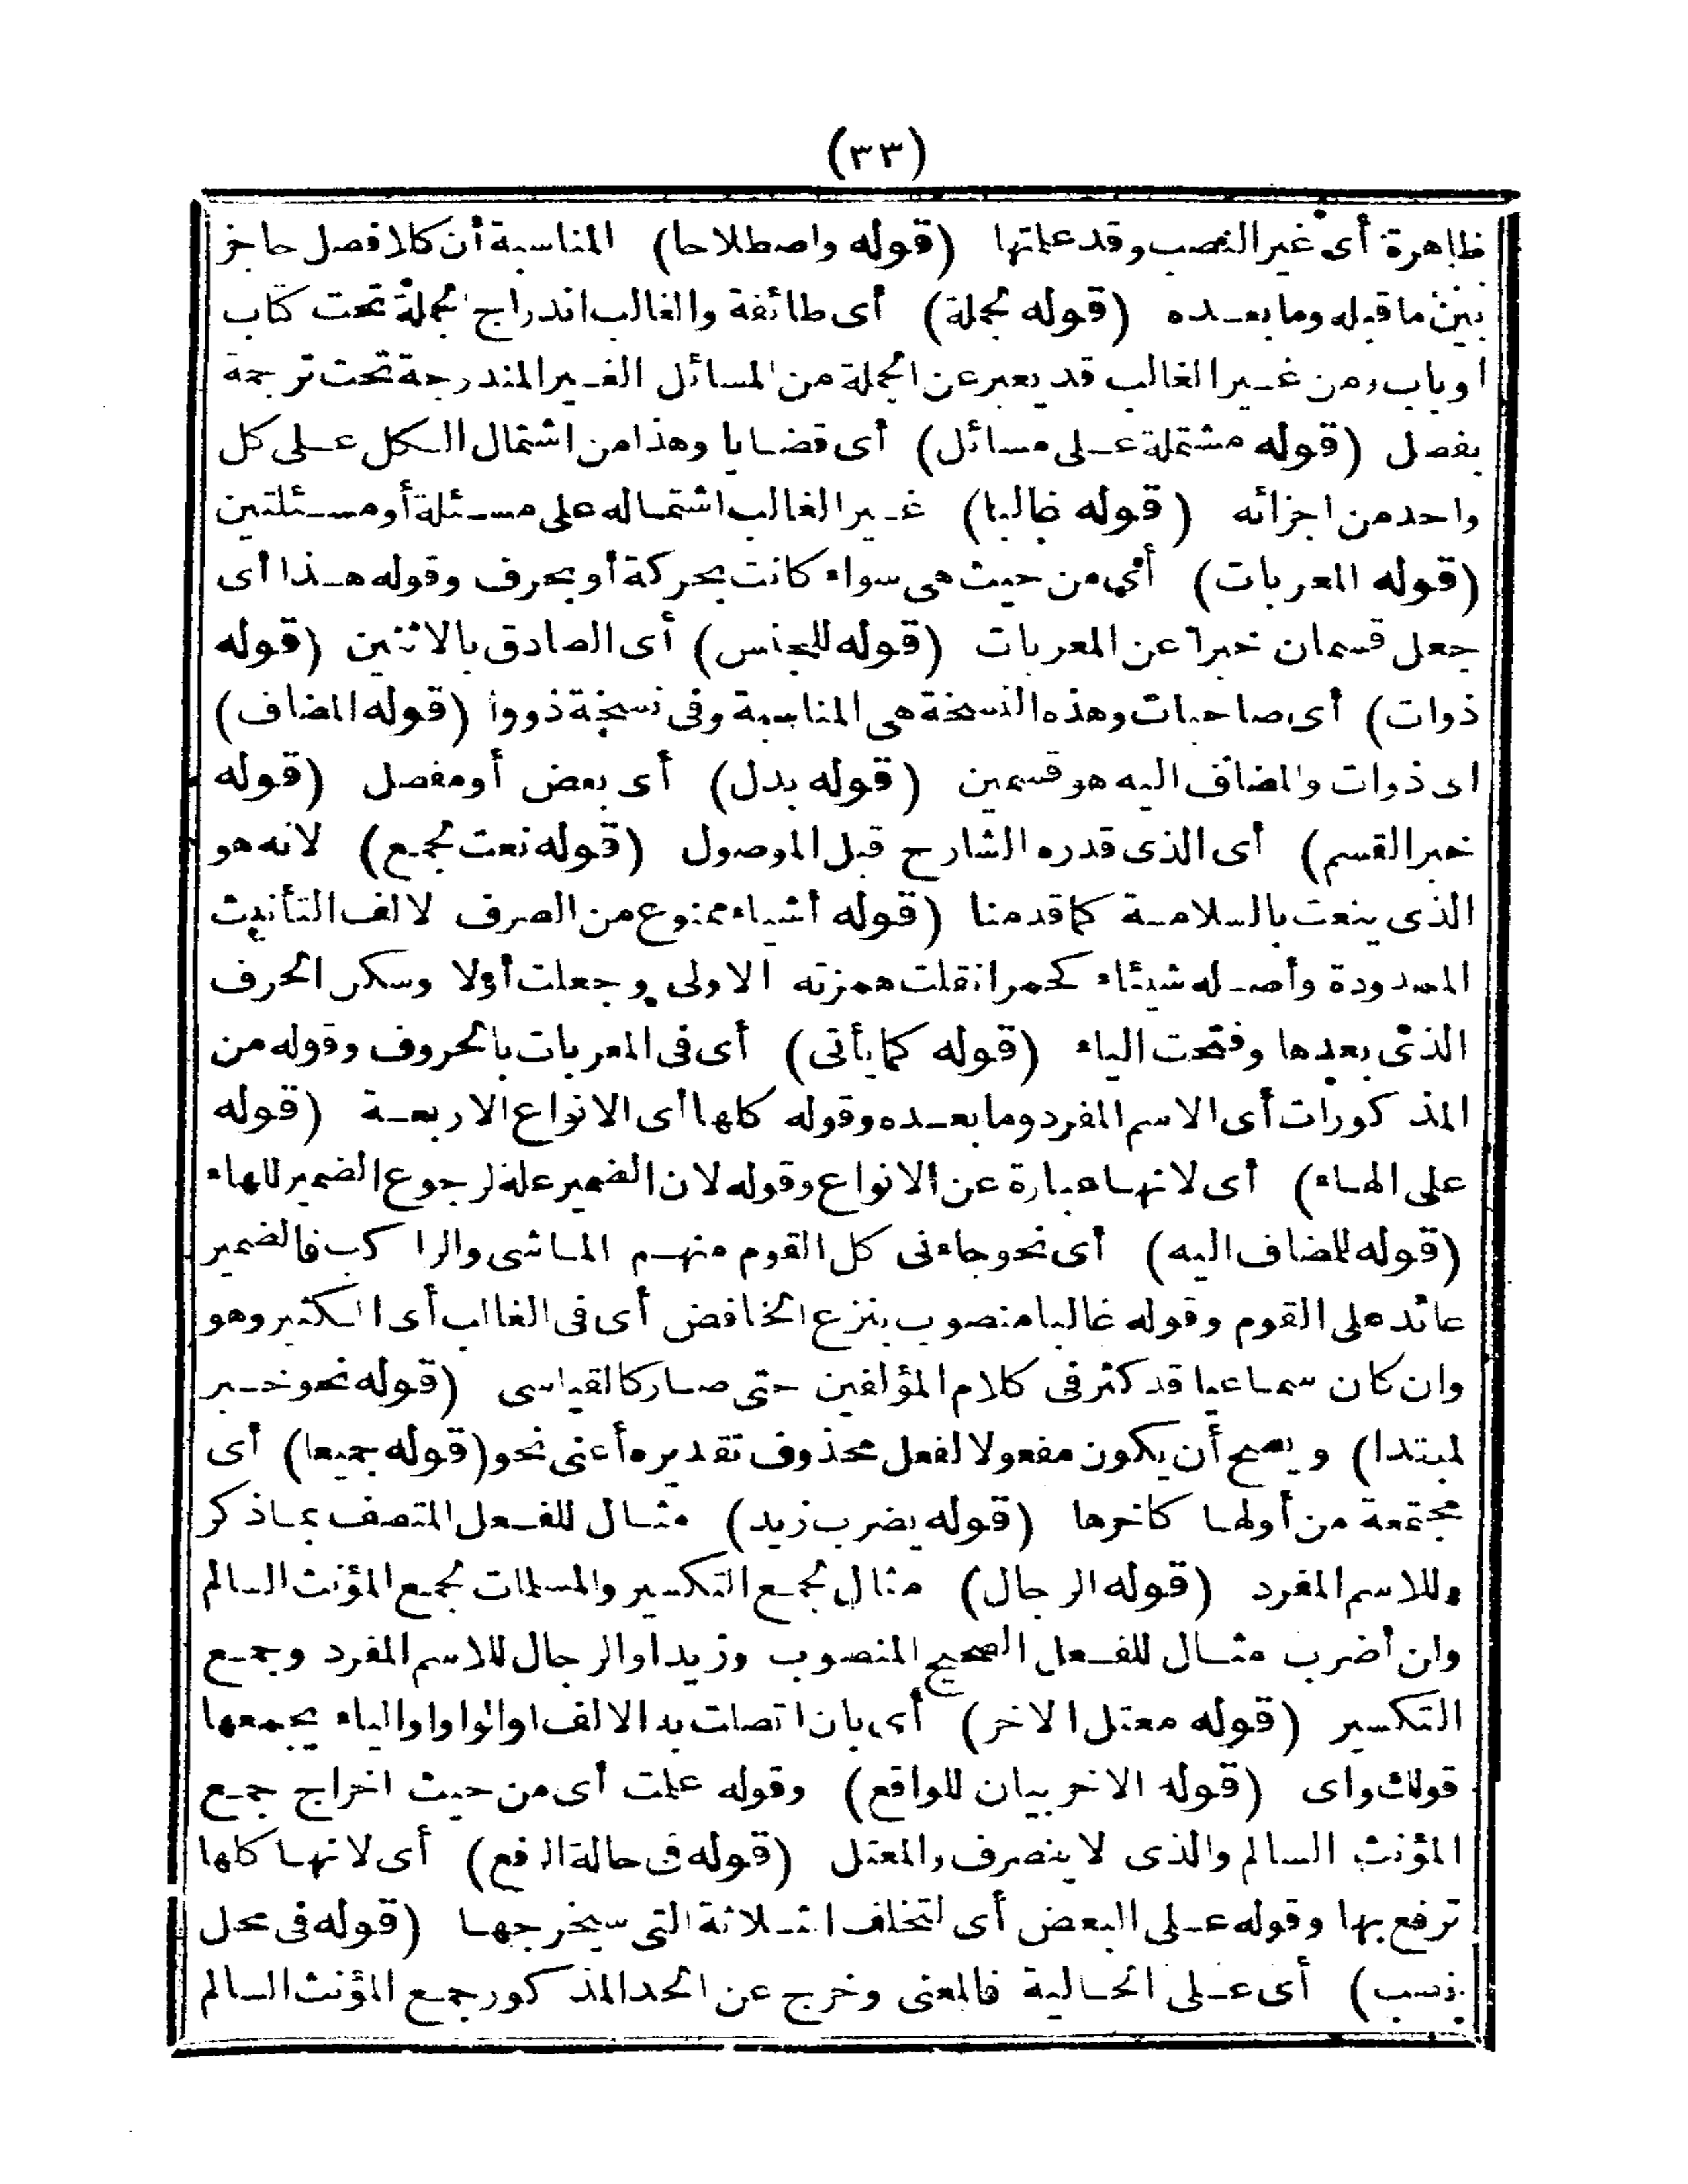 (٣٣)
ظاهرة أى غير النصب وقد علمتها (قوله واصطلاحا) المناسبة أن كلا فصل حاجز
بين ما قبله وما بعده (قوله لجملة) أى طائفة والغالب اندراج الجملة تحت كتاب
أو باب ومن غير الغالب قد يعبر عن الجملة من المسائل الغير المندرجة تحت ترجمة
بفصل (قوله مشتملة على مسائل) أى قضايا وهذا من اشتمال الكل على كل
واحد من اجزائه (قوله غالبا) غير الغالب اشتماله على مسئلة أو مسئلتين
(قوله المعربات) أى من حيث هى سواء كانت بحركة أو بحرف وقوله هذا أى
جعل قسمان خبرا عن المعربات (قوله للجنس) أى الصادق بالاثنين (قوله
ذوات) أى صاحبات وهذه النسخة هى المناسبة وفى نسخة ذووا (قوله المضاف)
اى ذوات والمضاف اليه هو قسمين (قوله بدل) أى بعض أو مفصل (قوله
خبر القسم) أى الذى قدره الشارح قبل الموصول (قوله نعت لجمع) لانه هو
الذى ينعت بالسلامة كما قدمنا (قوله أشياء ممنوع من الصرف لالف التأنيث
الممدودة وأصله شيئاء كحمرا نقلت همزته الاولى وجعلت أولا وسكن الحرف
الذى بعدها وفتحت الياء (قوله كما يأتى) أى فى المعربات بالحروف وقوله من
المذكورات أى الاسم المفرد وما بعده وقوله كلها أى الانواع الاربعة (قوله
على الهاء) أى لانها عبارة عن الانواع وقوله لان الضمير علة لرجوع الضمير للهاء
(قوله للمضاف اليه) أى نحو جاءنى كل القوم منهم الماشى والراكب فالضمير
عائد على القوم وقوله غالبا منصوب بنزع الخافض أى فى الغالب أى الكثير وهو
وان كان سماعيا قد كثر فى كلام المؤلفين حتى صار كالقياسى (قوله نحو خبر
لمبتدا) ويصح أن يكون مفعولا لفعل محذوف تقديره أعنى نحو (قوله جميعا) أى
مجتمعة من أولها كاخرها (قوله يضرب زيد) مثال للفعل المتصف بما ذكر
وللاسم المفرد (قوله الرجال) مثال لجمع التكسير والمسلمات لجمع المؤنث السالم
وان أضرب مثال للفعل الصحيح المنصوب وزيدا والرجال للاسم المفرد وجمع
التكسير (قوله معتل الاخر) أى بان اتصلت به الالف او الواو او الياء يجمعها
قولك واى (قوله الاخر بيان للواقع) وقوله علمت أى من حيث اخراج جمع
المؤنث السالم والذى لا ينصرف والمعتل (قوله فى حالة الرفع) أى لانها كلها
ترفع بها وقوله على البعض أى لتخلف الثلاثة التى سيخرجها (قوله فى محل
نصب) أى على الحالية فالمعنى وخرج عن الحد المذكور جمع المؤنث السالم